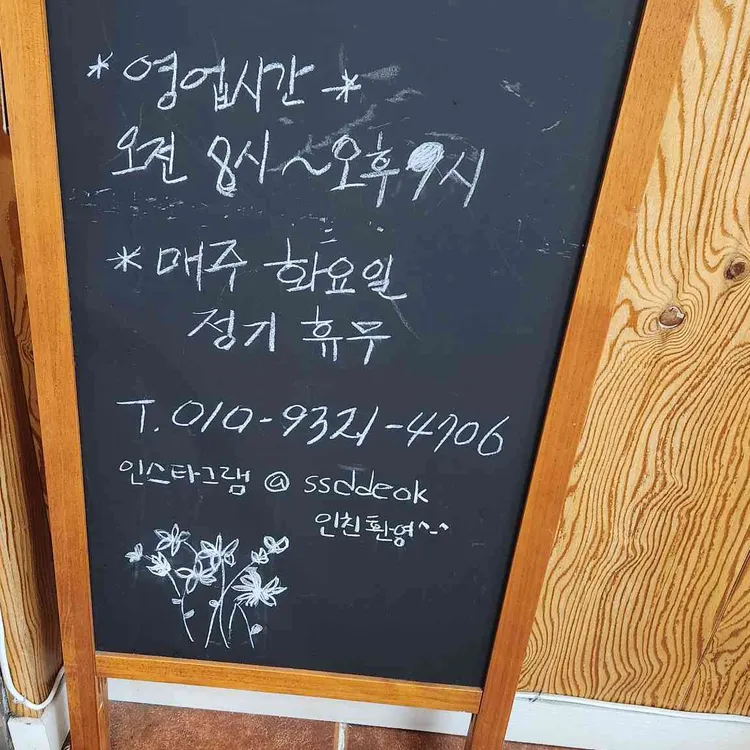 * 영업시간 *
오전 8시 ~ 오후 9시
* 매주 화요일
정기 휴무
T. 010-9321-4706
인스타그램 @ ssddeok
인친환영^-^